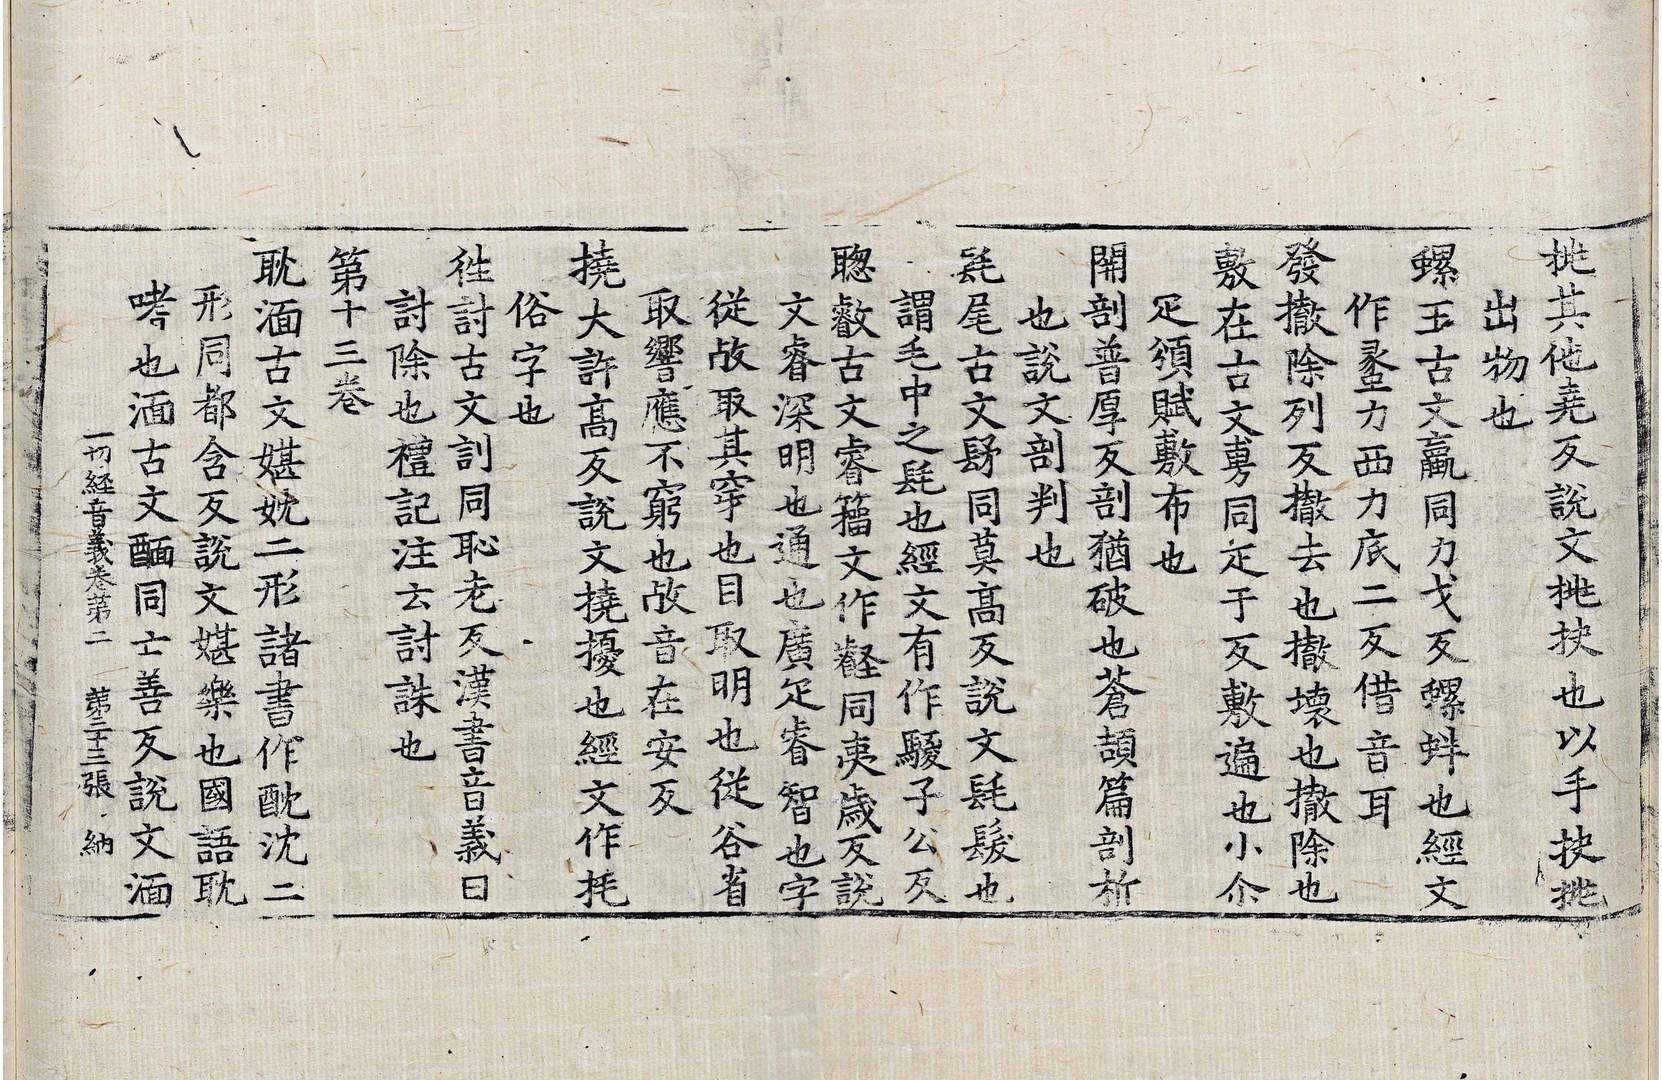 挑其他堯反說文挑抉也以手抉挑
出物也
螺玉古文蠃同力戈反螺蚌也經文
作蠡力西力底二反借音耳
發撤除列反撤去也撤壞也撤除也
敷在古文旉同疋于反敷遍也小尒
疋頒賦敷布也
開剖普厚反剖猶破也蒼頡篇剖析
也說文剖判也
髦尾古文髳同莫高反說文髦髮也
謂毛中之髦也經文有作騣子公反
聰叡古文睿籀文作壡同夷歲反說
文睿深明也通也廣疋睿智也字
從㕡取其穿也目取明也從谷省
取響應不窮也㕡音在安反
撓大許高反說文撓擾也經文作托
俗字也
往討古文訓同恥老反漢書音義曰
討除也禮記注云討誅也
第十三卷
耽湎古文媅妉二形諸書作酖沈二
形同都含反說文媅樂也國語耽
嗜也湎古文醽同亡善反說文湎
一切經音義卷第二 第二十三張 納